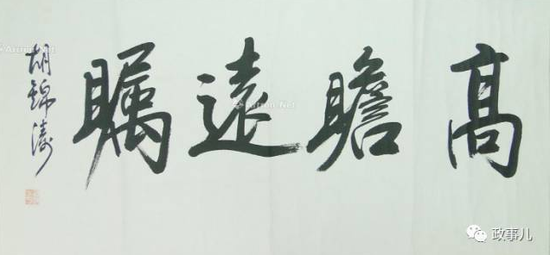 高瞻遠矚
胡錦濤
政事儿